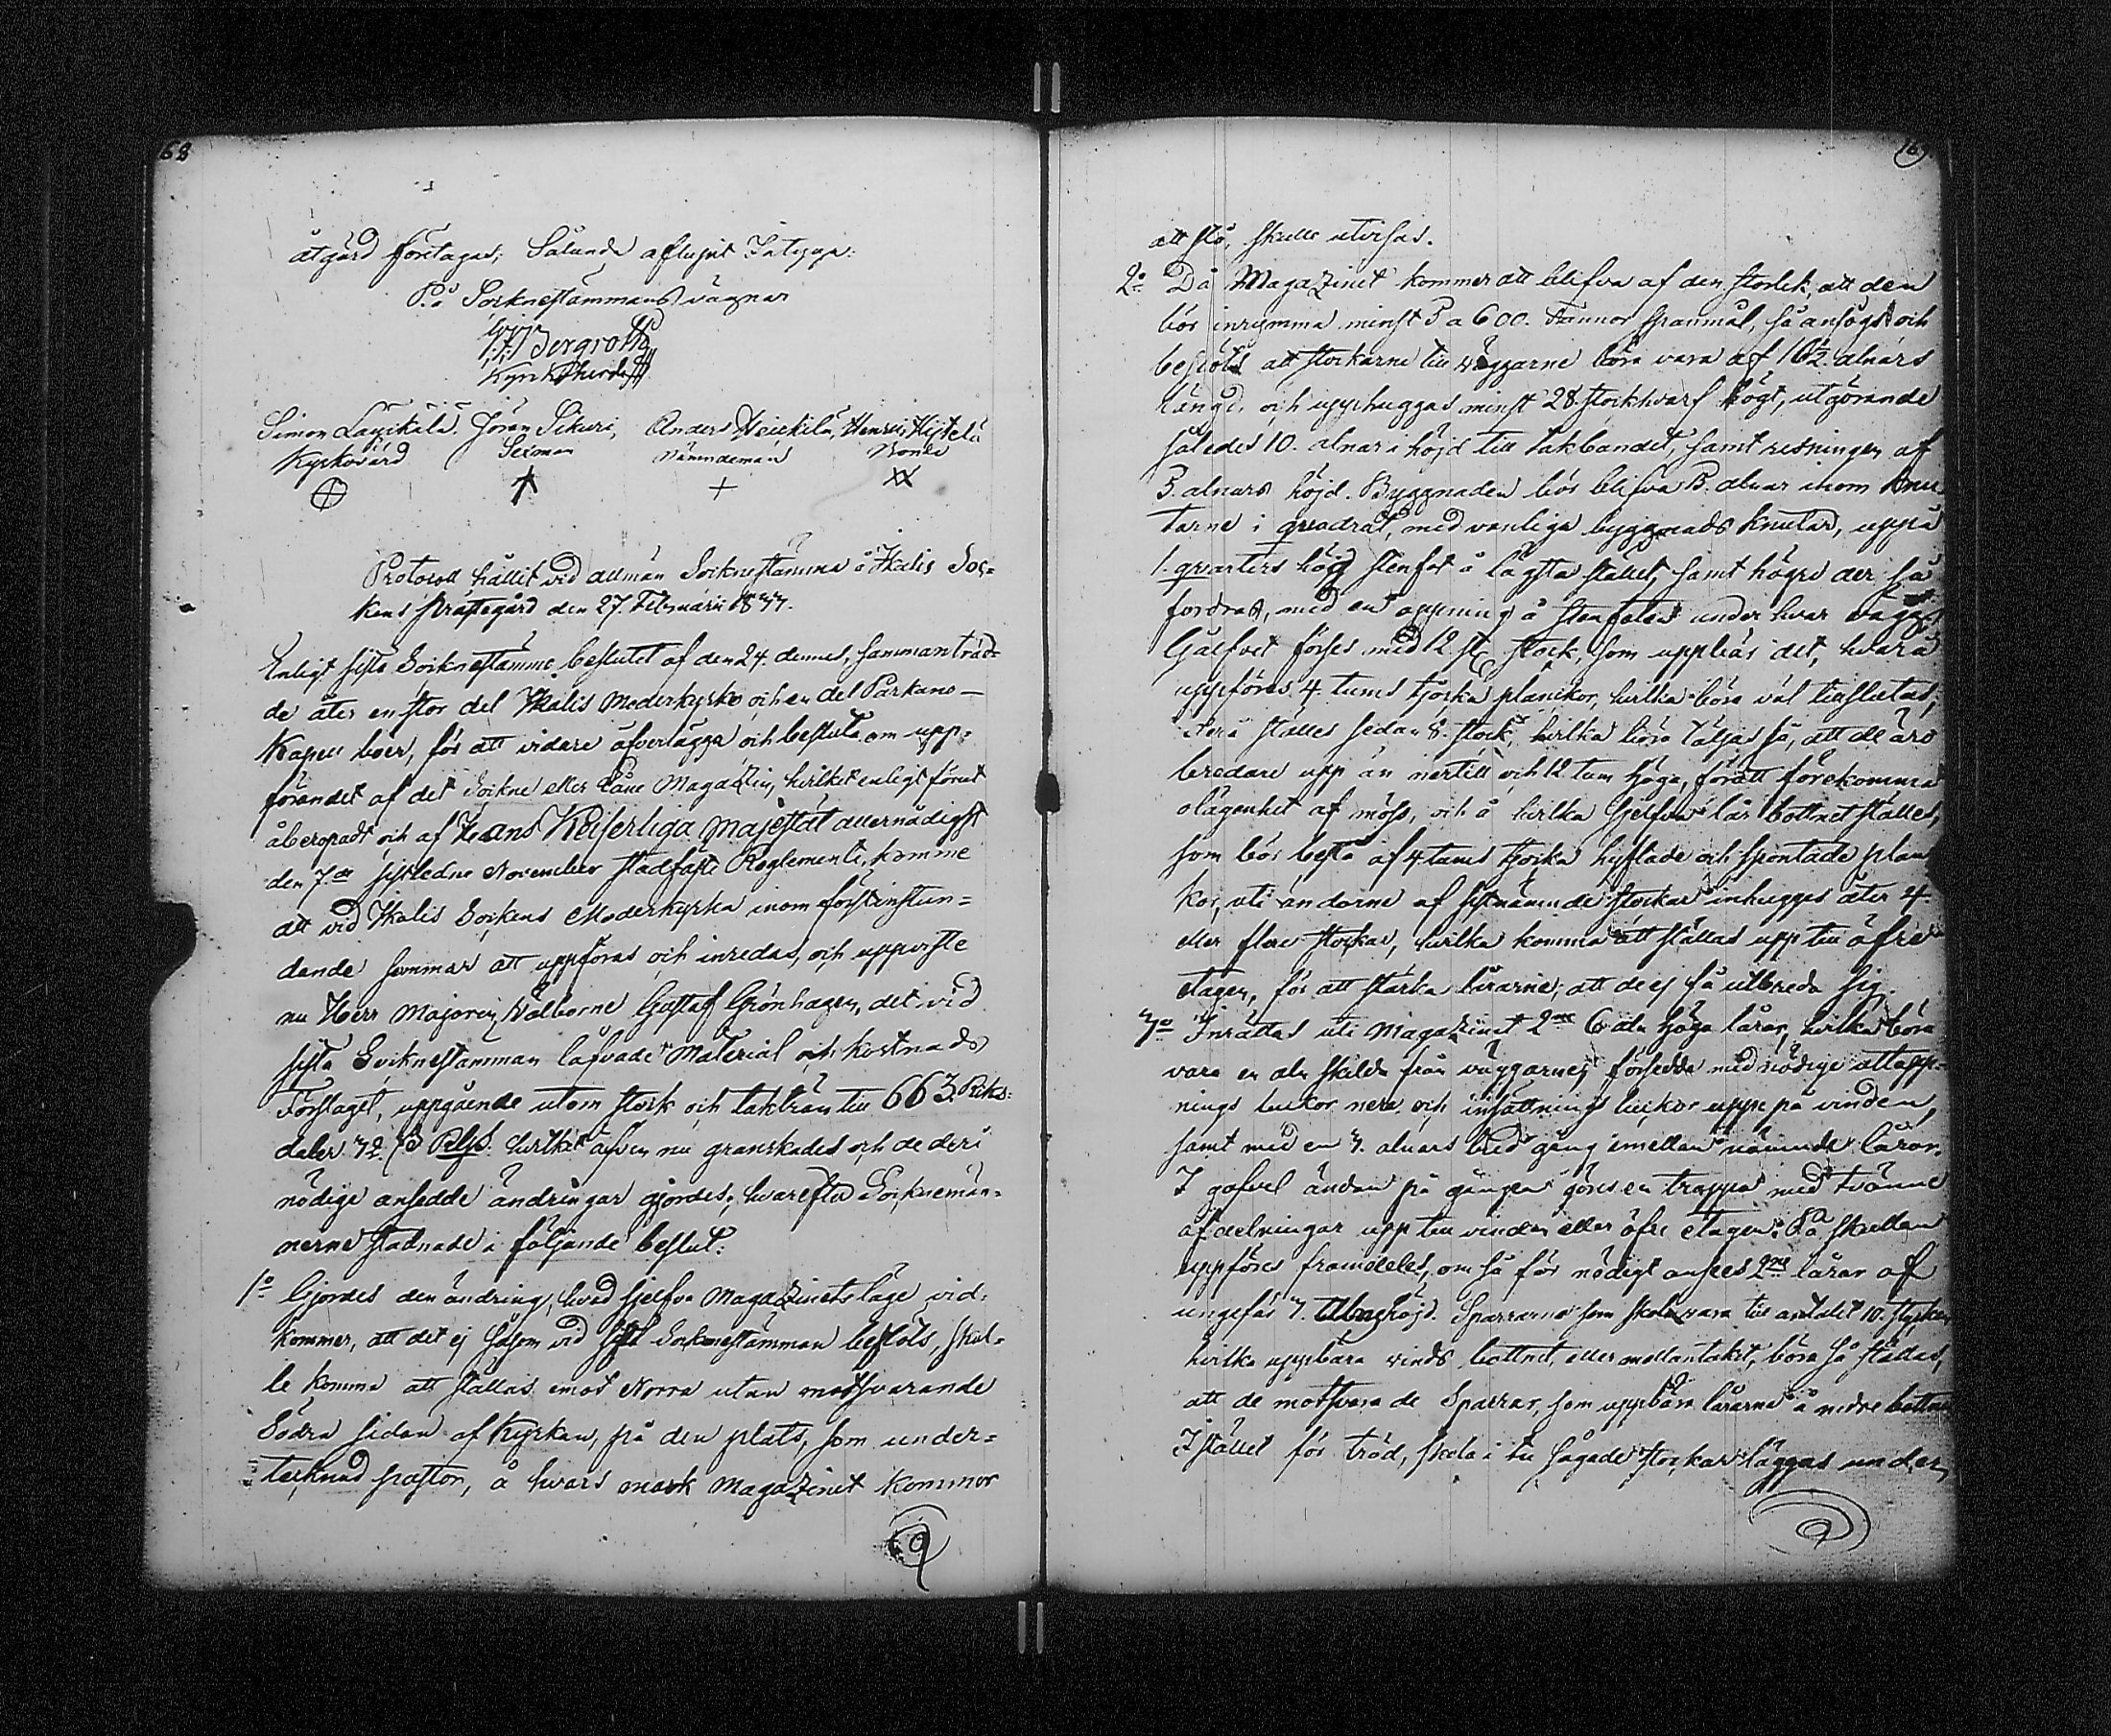 68
åtgärd företagas; Sålunda aflupit Intyga:
På Socknestämmans vägnar
Bergroth
Kyrkoherde
Simon Laysikälä. Jöran Sikuri, Anders Heickilä, Henric Kijtelä
Kyrkovärd Sexman Nämndeman Bonde
Protocoll hållit vid allmän Socknestämma å Ikalis Soc-
kens prästegård den 27. Februarii 18
Enligt sista Socknestämme beslutet af den 24. dennes, sammanträd-
de åter en stor del Ikalis Moderkyrko och en del Parkano-
Kapell boer, för att vidare öfverlägga och besluta om upp-
förandet af det Sockne eller Låne Magazin, hvilket enligt förut
åberopadt och af Hans Keijserliga Majestät allernådigst
den 7.de sistledne November stadfäste Reglemente, komme
att vid Ikalis Sockens Moderkyrka inom förstinstun-
dande sommar att uppföras och inredas, och uppviste
nu Herr Majoren Wälborne Gustaf Grönhagen, det vid
sista Socknestämman låfvade Material och kostnads
Förslaget, uppgående utom stock och takträn till 663. Riks-
daler 32 hvilket äfven nu granskades och de deri
nödige ansedde ändringar gjordes; hvarefter Socknemän-
nerne stadnade i följande beslut:
1o Gjordes den ändring, hvad sjelfva Magazinets läge vid-
kommer, att det ej såsom vid sista Socknestämman beslöts, skul-
le komma att ställas emot Norra utan motsvarande
Södra sidan af Kyrkan, på den plats, som under-
tecknad pastor, å hvars mark Magazinet kommer
169
att stå, skulle utvisas.
2o Då Magazinet kommer att blifva af den storlek, att den
bör inrymma minst 5 a 600. Tunnor spannmål, så ansågs och
beslöts att stockarne till väggarne böra vara af 16½ alnars
längd, och upphuggas minst 28. stockhvarf högt, utgörande
således 10. alnar i höjd till takbandet, samt resningen af
5. alnars höjd. Byggnaden bör blifva 15. alnar inom knu-
tarne i quadrat, med vanliga byggnads knutar, uppå
1. quarters hög stenfot å lägsta stället, samt högre der så
fordras, med en öppning å stenfoten under hvar vägg
Gålfvet förses med 12 st. stock, som uppbär det, hvarå
uppföras 4. tums tjocka plankor, hvilka böra väl tillslutas,
Derå ställes sedan 8. stock, hvilka böra täljas så, att de äro
bredare upp än nertill och 12 tum höga, för att förekomma
olägenhet af möss, och å hvilka sjelfva lår bottnet ställes,
som bör bestå af 4. tums tjocka hyflade och spontade plan
kor, uti ändarne af sistnämnde stockar inhugges åter 4
eller flere stockar, hvilka komma att ställas upp till öfre
etagen, för att stärka lårarne, att de ej få utbreda sig.
3o Inrättas uti Magazinet 2ne 6 aln höga lårar, hvilka böra
vara en aln skilda från väggarne, försedde med nödige uttapp-
nings luckor nere och insättnings luckor uppe på vinden,
samt med en 3. alnars bred gång emellan nämnde lårar.
I gafvel ändan på gången göres en trappa med tvänne
afdelningar upp till vinden eller öfre etagen. På skullan
uppföres framdeles, om så för nödigt anses 2ne lårar af
ungefär 3. alnars höjd. Sparrarne som skola vara till antalet 10. stycken
hvilka uppbära vinds bottnet, eller mellantaket, böra så ställas,
att de motsvara de Sparrar, som uppbära lårarne å nedre bottnen
I stället för tröd, skola i tu sågade stockar läggas under,